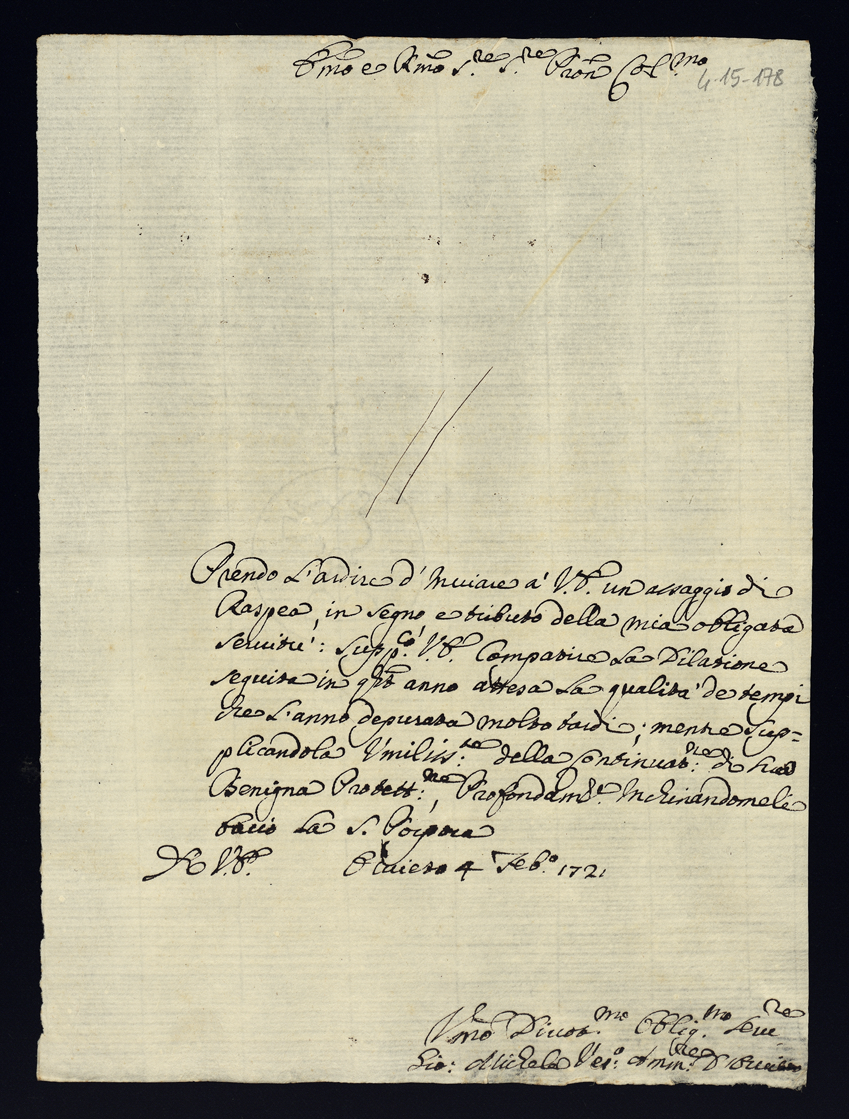 Em̃o e Rm̃o S.re S.re Pron Col.mo
4-15-178
Prendo L'ardire d'Inuiare a' V.E. un assaggio di
Raspea, in segno, e tributo della mia obligata
seruitu': supp.co V.E. Compatire La Dilatione
seguita in q̃to anno attesa La qualita' de tempi
che L'anno depurata molto tardi; mentre Sup=
plicandola Vmiliss.te della Continuat.ne di Sua
Benigna Protett.ne, Profondam.te Inchinandomeli
bacio La S. Porpora
Di V.E. Chiero 4 Feb.o 1721
Vm̃o Diuot.mo Oblig.mo Seru.re
Gio: Michele Ves.o Amm.re